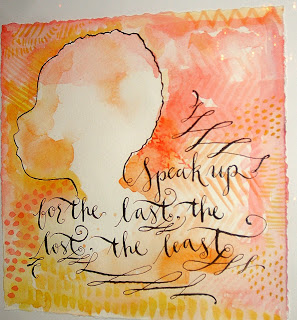 Speak up
for the last, the
lost, the least